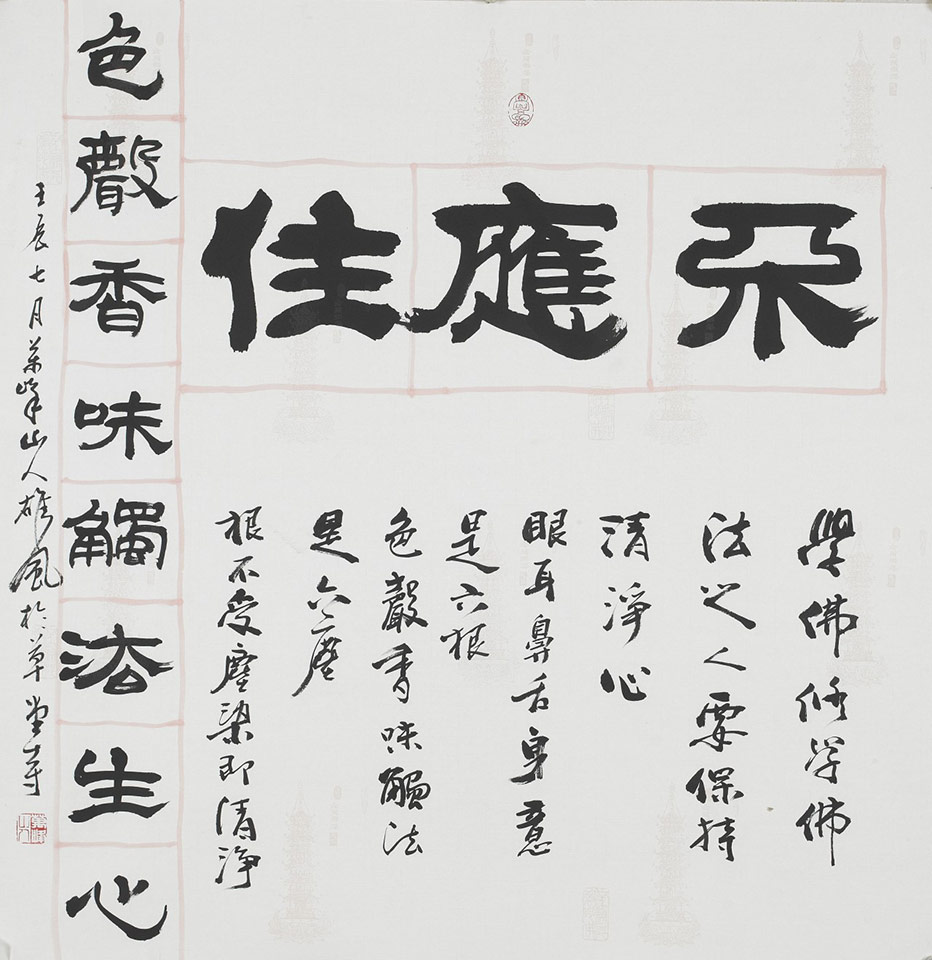 不應住
學佛修學佛
法之人要保持
清淨心
眼耳鼻舌身意
是六根
色聲香味觸法
是六塵
根不受塵染即清淨
色聲香味觸法生心
壬辰七月峯山人雄風於草堂寺